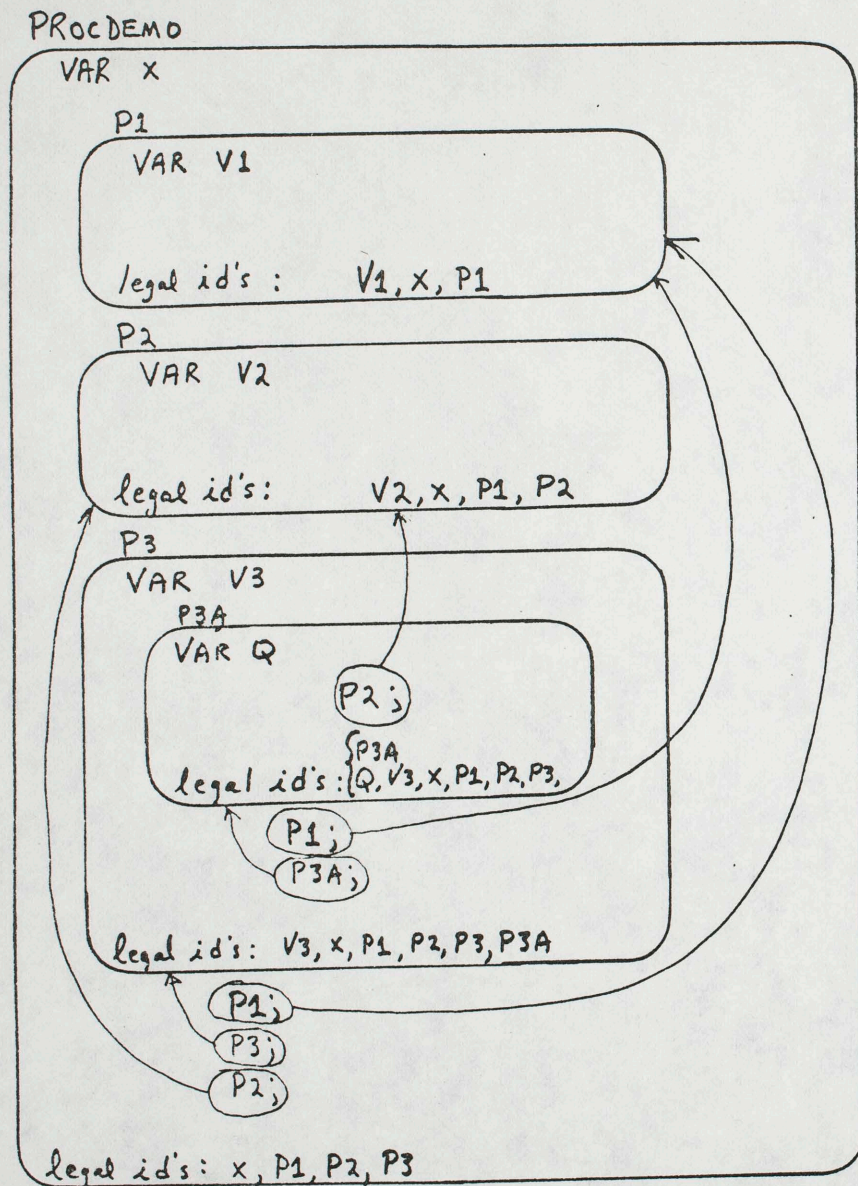 PROCDEMO
VAR X
P1
VAR V1
legal id's : V1, X, P1
P2
VAR V2
legal id's: V2, X, P1, P2
P3
VAR V3
P3A
VAR Q
P2;
P3A
legal id's: Q, V3, X, P1, P2, P3,
P1;
P3A;
legal id's: V3, X, P1, P2, P3, P3A
P1;
P3;
P2;
legal id's: X, P1, P2, P3